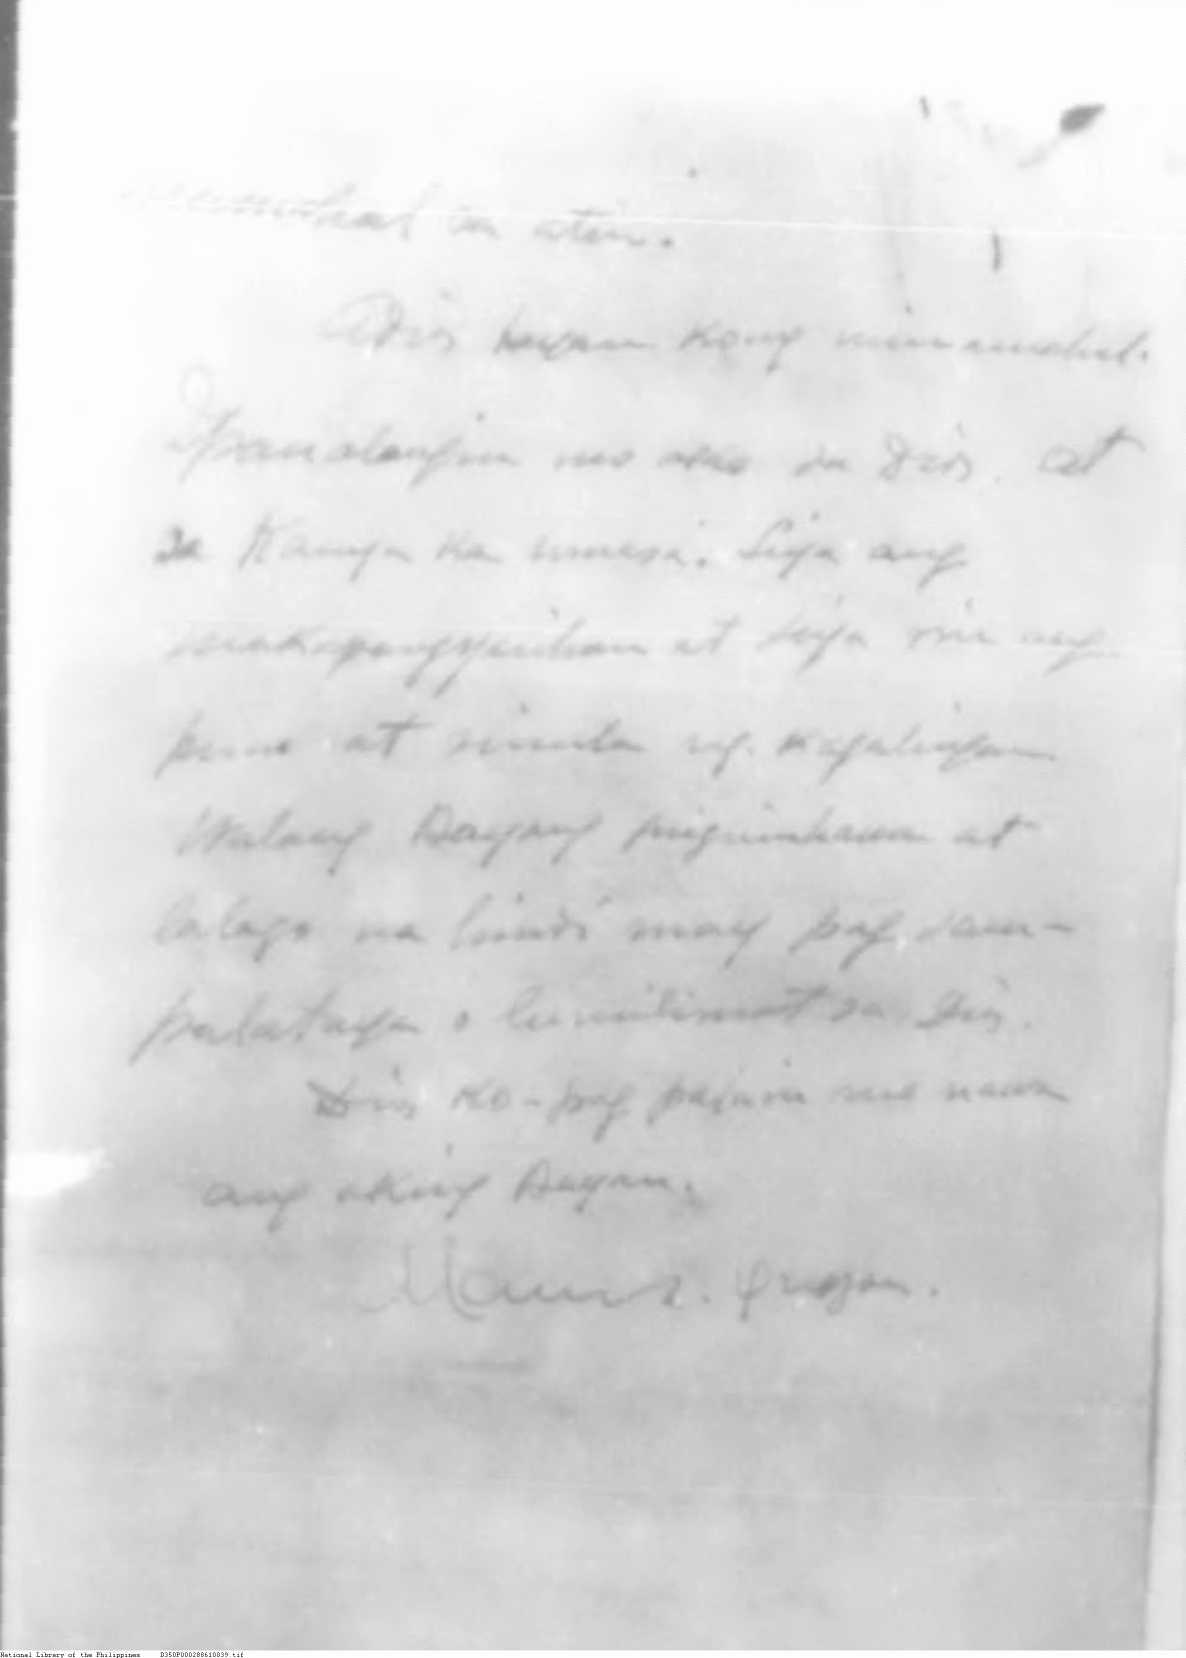 sa atin.
Adios bayan kong minamahal.
Ipanalangin mo ako sa Dios, at
sa Kanya ka umasa. Siya ang
makapangyarihan at siya rin ang
puno at simula ng kagalingan
Walang Bayang maginhawa at
lalago na hindi may pag sam-
palataya o lumilimot sa Dios.
Dios ko - pag palain mo nawa
ang aking Bayan.
Quezon.
National Library of the Philippines D350P000288610039.tif